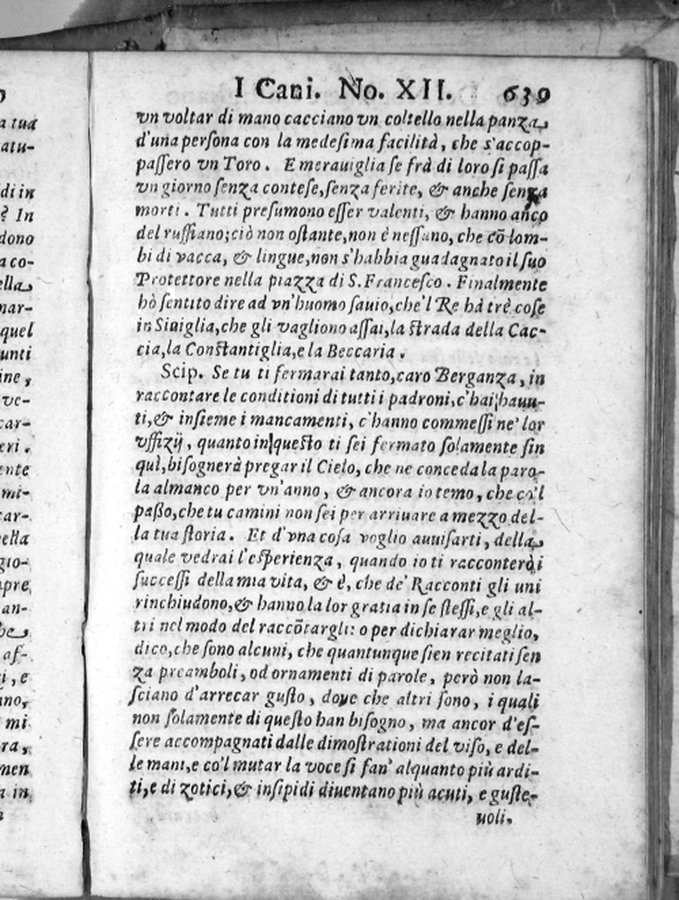 I Cani. No. XII. 639
vn voltar di mano cacciano vn coltello nella panza
d'una persona con la medesima facilità, che s'accop-
passero vn Toro. E merauiglia se frà di loro si passa
vn giorno senza contese, senza ferite, & anche senza
morti. Tutti presumono esser valenti, & hanno anco
del ruffiano; ciò non ostante, non è nessuno, che cõ lom-
bi di vacca, & lingue, non s'habbia guadagnato il suo
Protettore nella piazza di S. Francesco. Finalmente
hò sentito dire ad vn'huomo sauio, che'l Re hà trè cose
in Siuiglia, che gli vagliono assai, la strada della Cac-
cia, la Constantiglia, e la Beccaria.
Scip. Se tu ti fermarai tanto, caro Berganza, in
raccontare le conditioni di tutti i padroni, c'hai hauu-
ti, & insieme i mancamenti, c'hanno commessi ne' lor
vffizij, quanto in questo ti sei fermato solamente sin
quì, bisognerà pregar il Cielo, che ne conceda la paro-
la almanco per vn'anno, & ancora io temo, che co'l
passo, che tu camini non sei per arriuare a mezzo del-
la tua storia. Et d'vna cosa voglio auuisarti, della
quale vedrai l'esperienza, quando io ti racconterò i
successi della mia vita, & è, che de' Racconti gli uni
rinchiudono, & hanno la lor gratia in se stessi, e gli al-
tri nel modo del raccõtargli: o per dichiarar meglio,
dico, che sono alcuni, che quantunque sien recitati sen
za preamboli, od ornamenti di parole, però non la-
sciano d'arrecar gusto, doue che altri sono, i quali
non solamente di questo han bisogno, ma ancor d'es-
sere accompagnati dalle dimostrationi del viso, e del-
le mani, e co'l mutar la voce si fan' alquanto più ardi-
ti, e di zotici, & insipidi diuentano più acuti, e guste-
uoli.